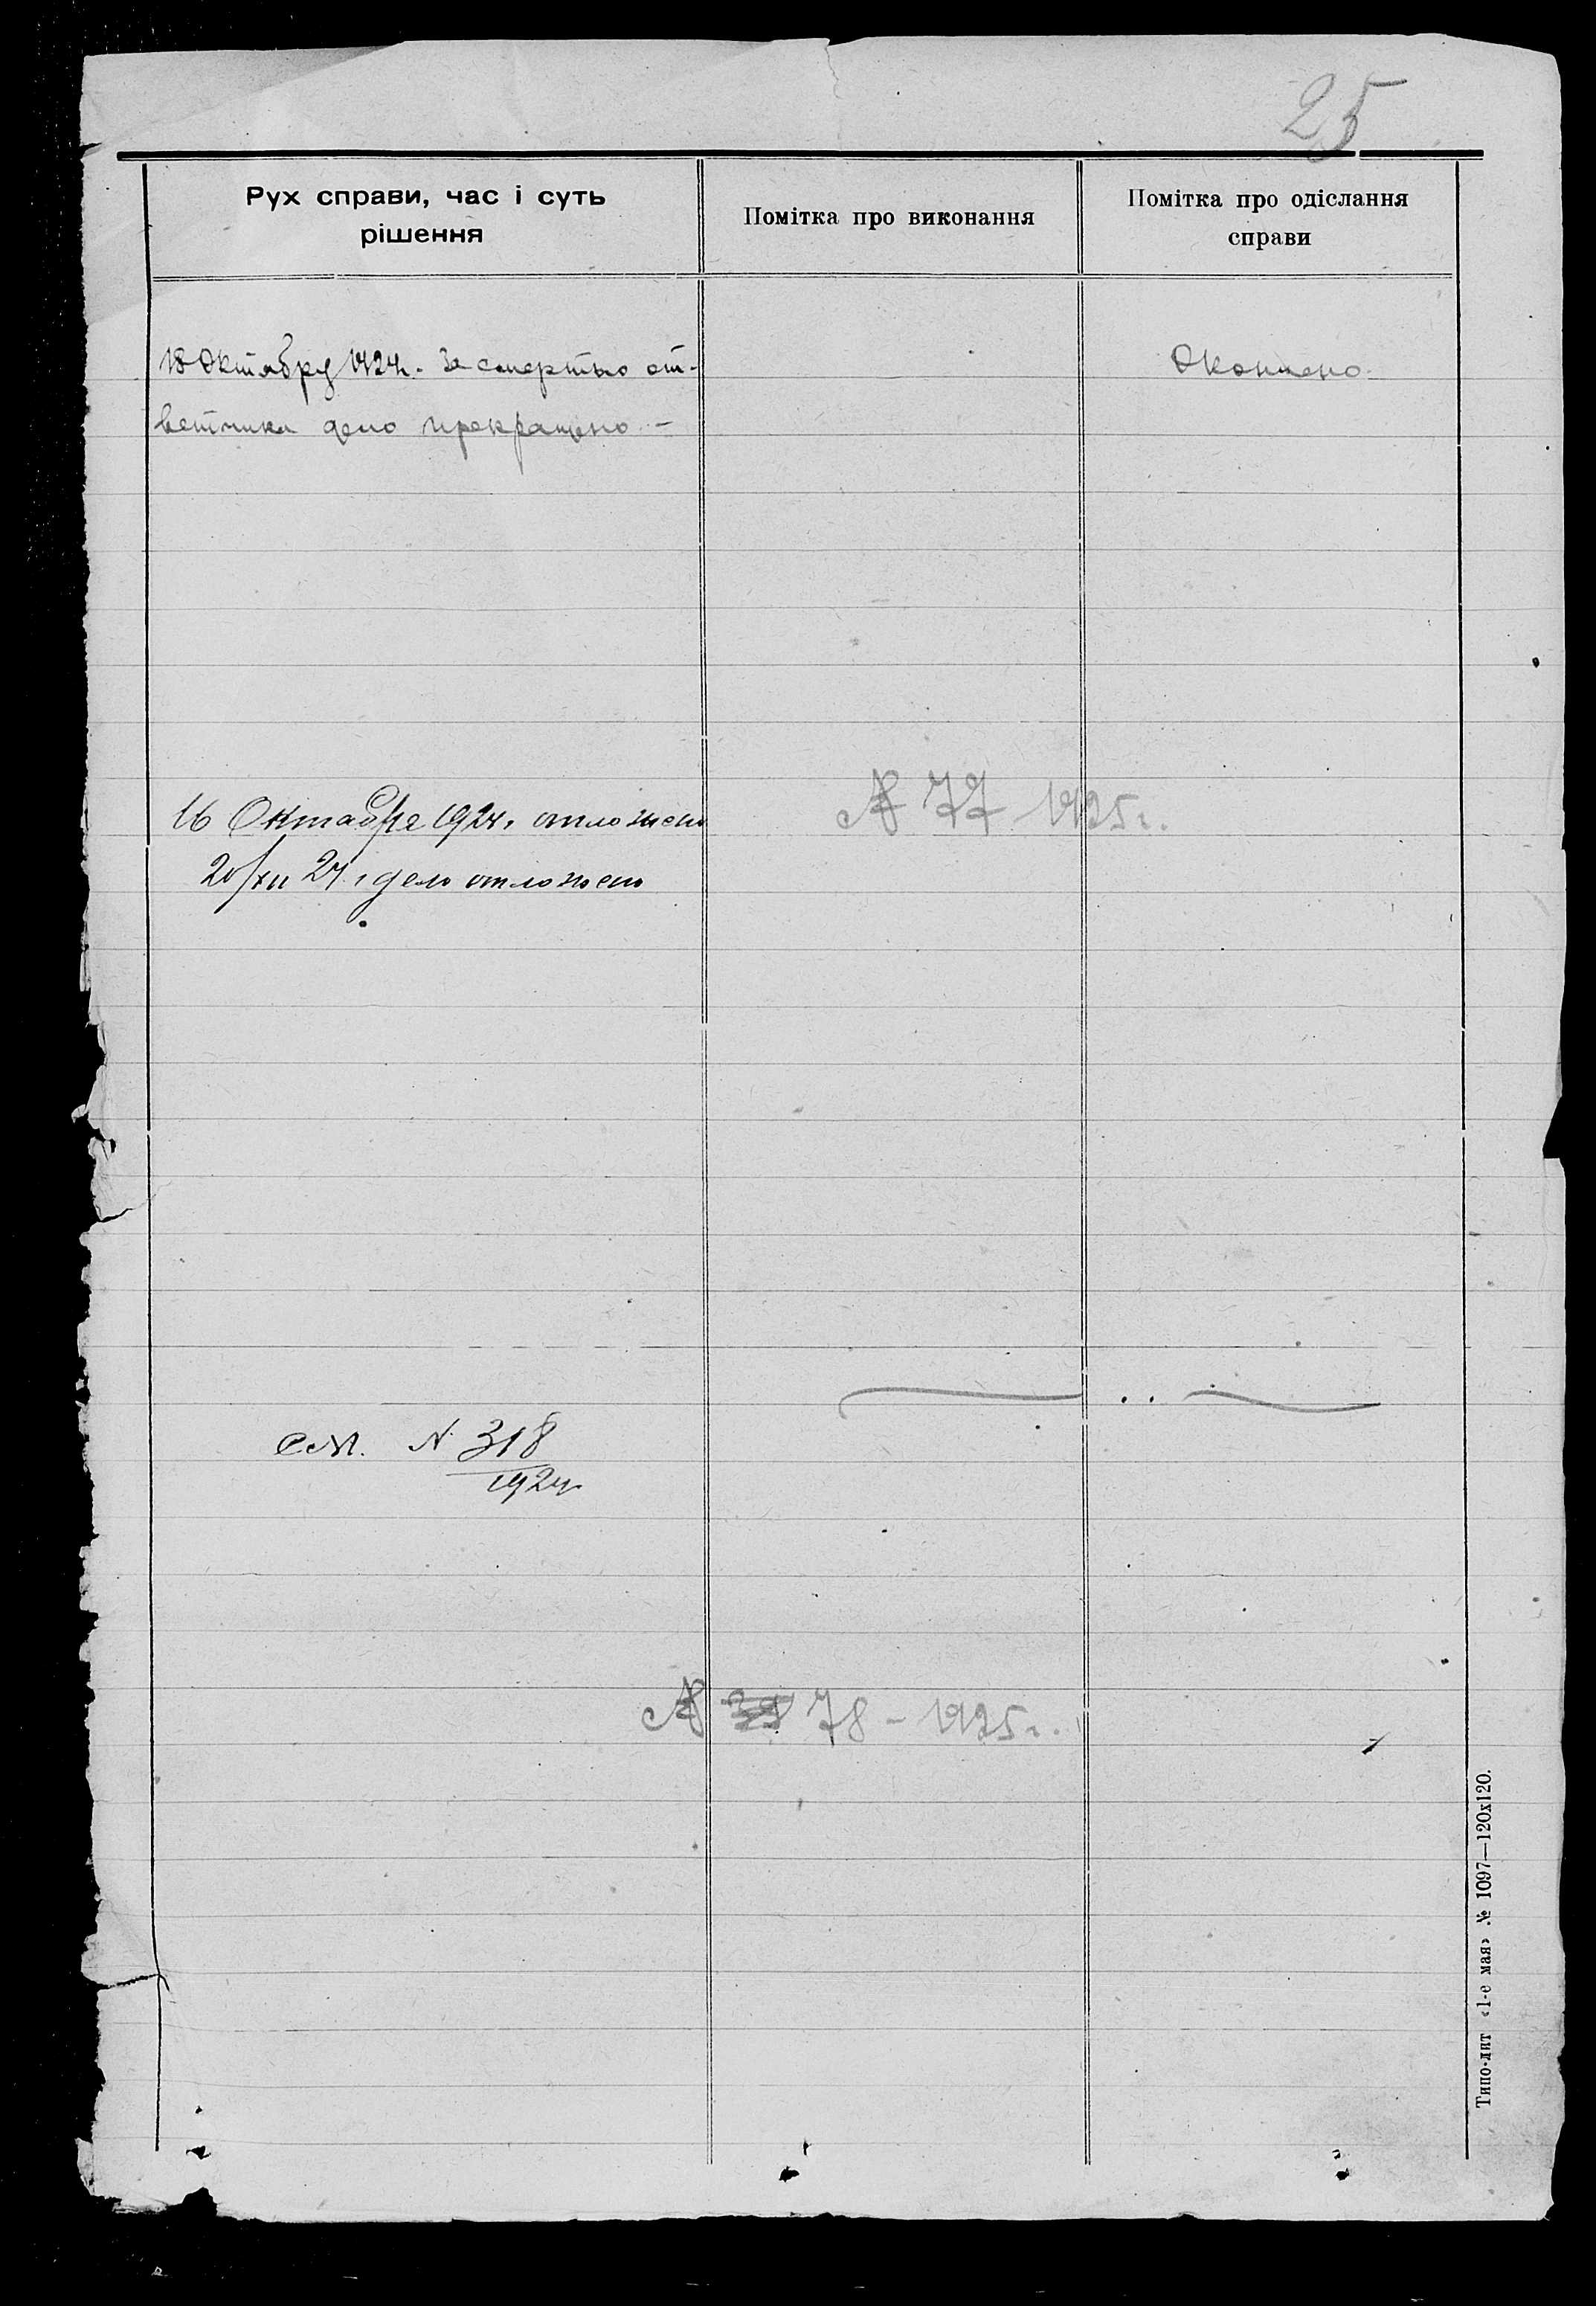 25
Рух справи, час і суть
рішення
Помітка про виконання
Помітка про одіслання
справи
18 Октябру 1924г. За смертью от-
ветчика дело прекращено. –
Окончено.
16 Октября 1924г. отложено
№ 77 1925г.
20/XII 24г. дело отложено
см. № 318
1924
№ 78 – 1925г.
Типо-лит «1-е мая» № 1097—120х120.